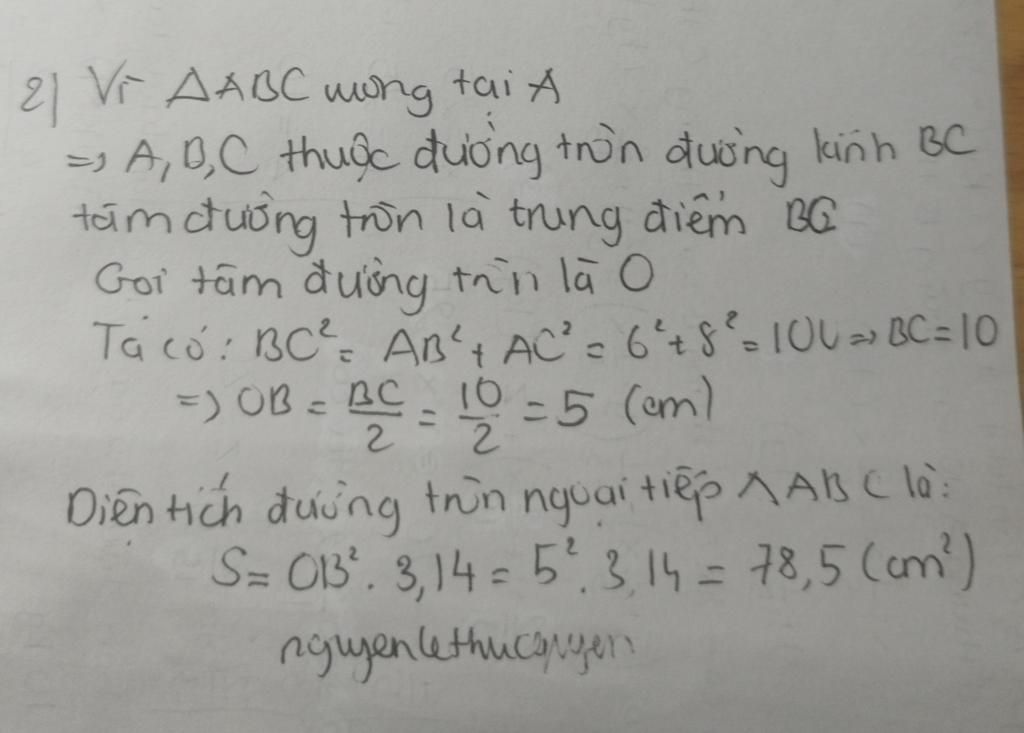 2) Vì ΔABC vuông tại A
=> A, B, C thuộc đường tròn đường kính BC
tâm đường tròn là trung điểm BC
Gọi tâm đường tròn là O
Ta có: BC² = AB² + AC² = 6² + 8² = 100 => BC = 10
=> OB = BC/2 = 10/2 = 5 (cm)
Diện tích đường tròn ngoại tiếp ΔABC là:
S = OB² . 3,14 = 5² . 3,14 = 78,5 (cm²)
nguyenlethucquyen